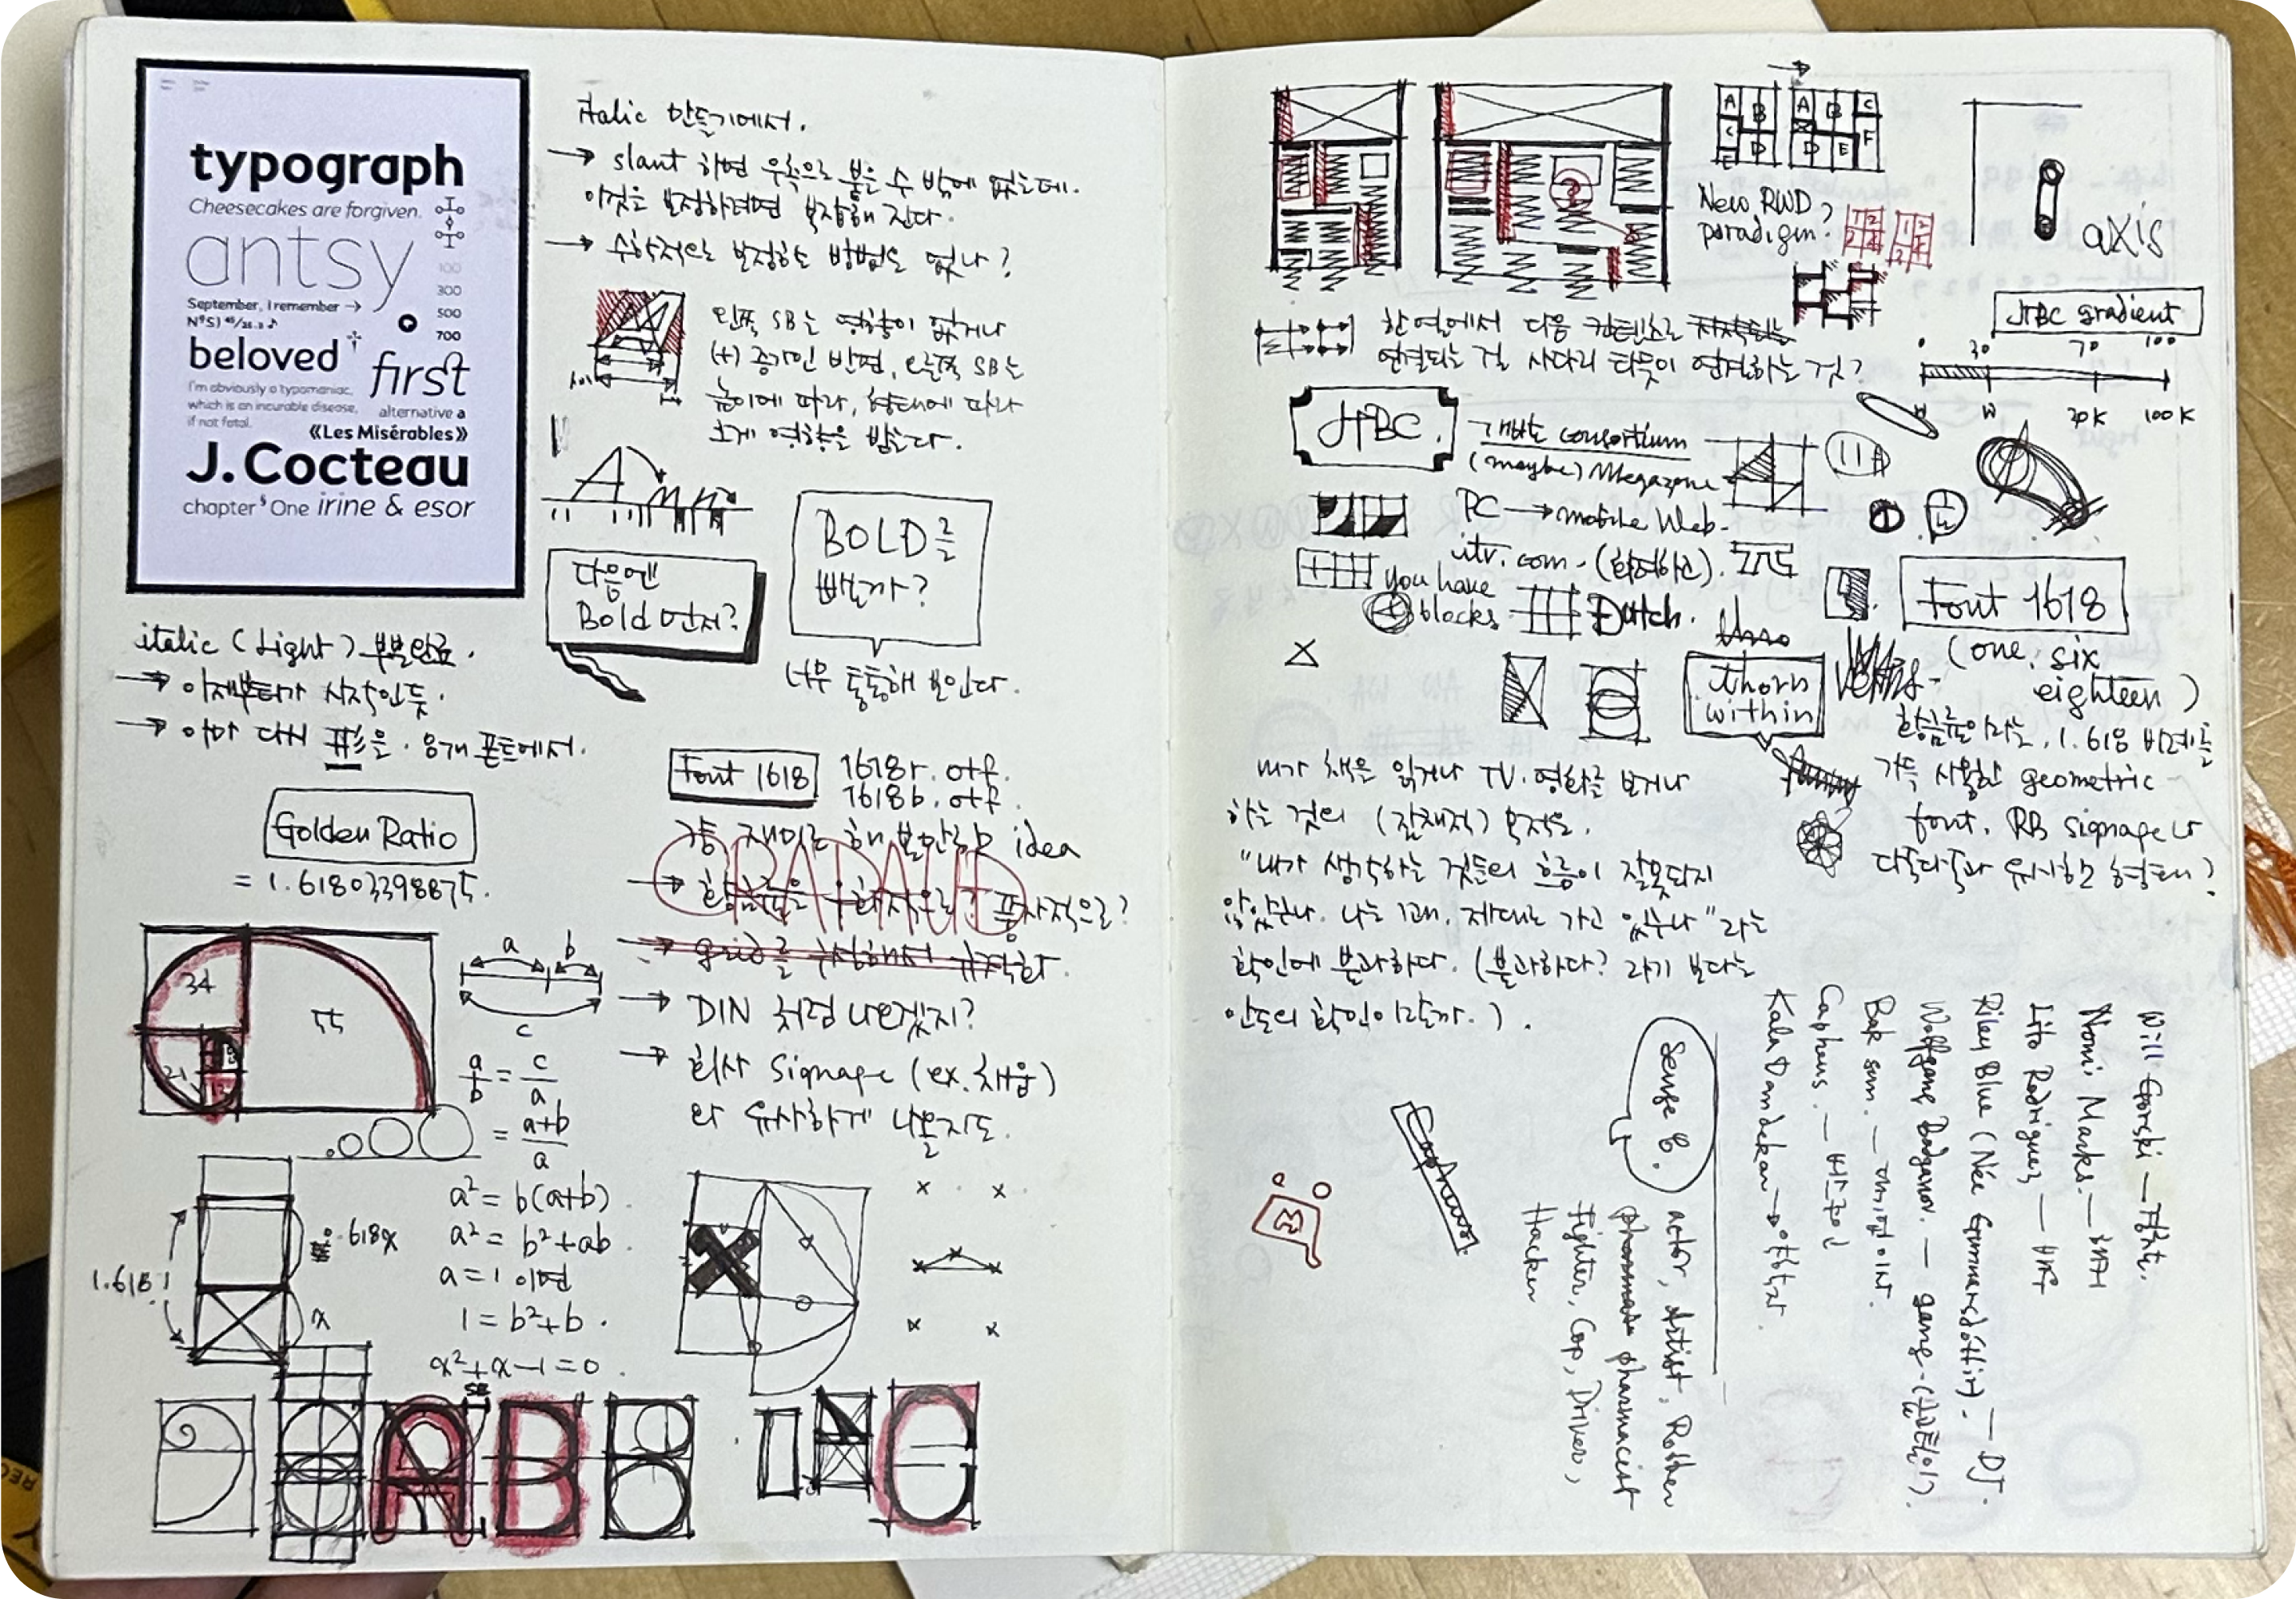 typograph
Cheesecakes are forgiven.
antsy
100
300
500
700
September, I remember →
beloved
first
I'm obviously a typomaniac,
which is an incurable disease,
if not fatal.
alternative a
《Les Misérables》
J. Cocteau
chapter § One irine & esor
italic 만들기에서.
→ slant 하면 우측으로 붙을 수 밖에 없는데.
이것을 보정하려면 복잡해 진다.
→ 수학적으로 보정하는 방법은 없나?
왼쪽 SB는 영향이 없거나
(+) 증가인 반면, 오른쪽 SB는
높이에 따라, 형태에 따라
크게 영향을 받는다.
다음엔
Bold 먼저?
BOLD를
뺄까?
너무 통통해 보인다.
italic (Light) 부분완료.
→ 이제부터가 시작인듯.
→ 아마 다시 표을. 8개 폰트에서.
Golden Ratio
= 1.61803398875.
34
55
21
a b
c
a/b = c/a
= a+b/a
a² = b(a+b)
a² = b²+ab
a=1 이면
1 = b²+b
x²+x-1=0
1.618
.618x
x
Font 1618
1618r.otf.
1618b.otf.
걍 재미로 해볼만한 idea
→ DIN 처럼 나오겠지?
→ 회사 Signage (ex. 채움)
와 유사하게 나올지도.
SB
A B
A B
C D
E
A B C
D E F
New RWD
paradigm?
axis
한 열에서 다음 컨텐츠로
연결되는 걸 사다리 타듯이 연결하는 것?
JTBC gradient
0 30 70 100
W 70K 100K
JTBC.
개발은 consortium
(maybe) Megazone
PC → mobile Web.
itv.com.
you have
blocks.
Dutch.
Font 1618
(one, six
eighteen)
황금률이라는, 1.618 비례를
가득 사용한 geometric
font. RB signage나
다축다축과 유사한 형태?
thorn
within
내가 책을 읽거나 TV.영화를 보거나
하는 것의 (잠재적) 목적은.
"내가 생각하는 것들의 흐름이 잘못되지
않았구나. 나는 꽤, 제대로 가고 있구나" 라는
확인에 불과하다. (불과하다? 라기 보다는
안도의 확인이랄까.).
Will Gorski — 경찰.
Nomi Marks. — 해커
Lito Rodriguez — 배우
Riley Blue (Née Gunnarsdóttir). — DJ.
Wolfgang Bogdanow. — gang.
Bak sun. —
Capheus. — 버스운전
Kala Dandekar → 약학자.
Sense 8.
actor, Artist, Robber
pharmacist
Fighter, Cop, Driver,
Hacker
Capheus